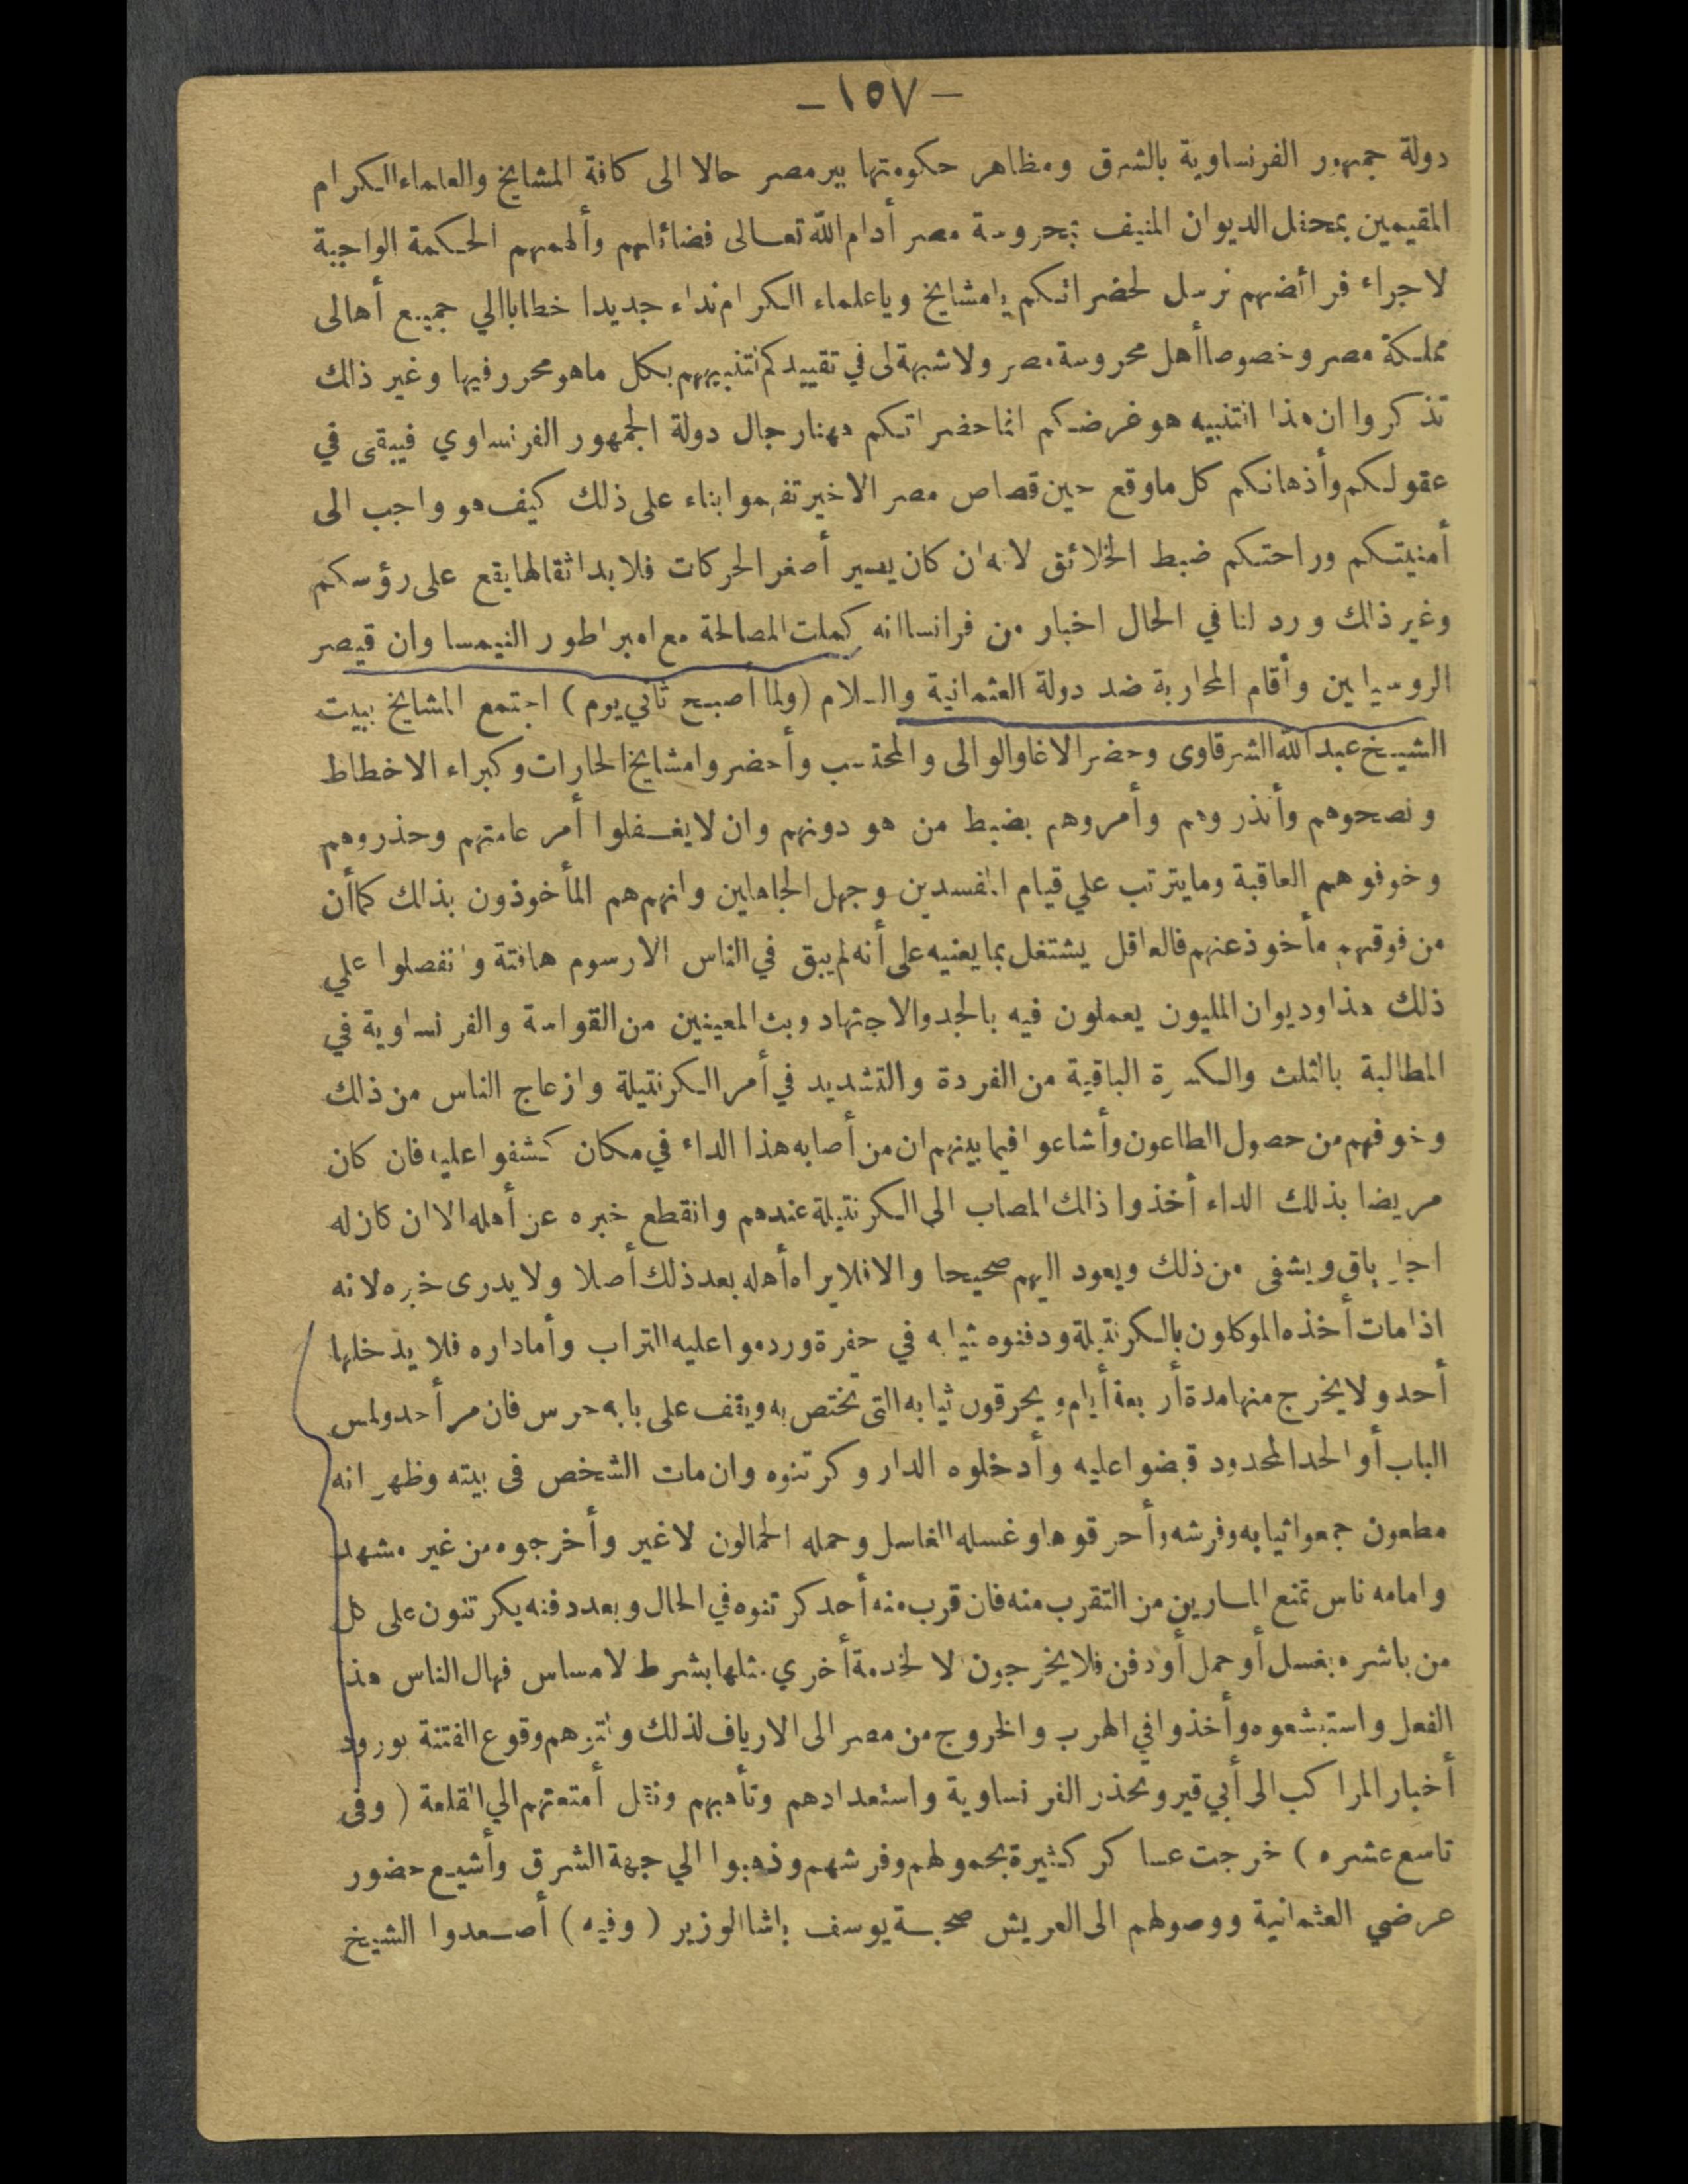 — ١٥٧ —
دولة جمهور الفرنساوية بالشرق ومظاهر حكومتها ببر مصر حالا الى كافة المشايخ والعلماء الكرام
المقيمين بمحفل الديوان المنيف بمحروسة مصر أدام الله تعالى فضائلهم وألهمهم الحكمة الواجبة
لاجراء فرائضهم نرسل لحضراتكم يا مشايخ ويا علماء الكرام نداء جديدا خطابا الي جميع أهالى
مملكة مصر وخصوصا أهل محروسة مصر ولا شبهة لى في تقييدكم لتنبيههم بكل ما هو محرر فيها وغير ذلك
تذكروا ان هذا التنبيه هو غرضكم انما حضراتكم مهنا رجال دولة الجمهور الفرنساوي فيبقى في
عقولكم وأذهانكم كل ما وقع حين قصاص مصر الاخير تفهموا بناء على ذلك كيف هو واجب الى
أمنيتكم وراحتكم ضبط الخلائق لانه ان كان يصير أصغر الحركات فلا بد اثقالها يقع على رؤسكم
وغير ذلك ورد لنا في الحال اخبار من فرانسا انه كملت المصالحة مع امبراطور النيمسا وان قيصر
الروسيايين وأقام المحاربة ضد دولة العثمانية والسلام (ولما أصبح ثاني يوم) اجتمع المشايخ ببيت
الشيخ عبد الله الشرقاوى وحضر الاغا والوالى والمحتسب وأحضروا مشايخ الحارات وكبراء الاخطاط
ونصحوهم وأنذروهم وأمروهم بضبط من هو دونهم وان لا يغفلوا أمر عامتهم وحذروهم
وخوفوهم العاقبة وما يترتب علي قيام المفسدين وجهل الجاهلين وانهم هم المأخوذون بذلك كما أن
من فوقهم مأخوذ عنهم فالعاقل يشتغل بما يعنيه على أنه لم يبق في الناس الا رسوم هافتة وانفصلوا علي
ذلك هذا وديوان المليون يعملون فيه بالجد والاجتهاد وبث المعينين من القواسة والفرنساوية في
المطالبة بالثلث والكسرة الباقية من الفردة والتشديد في أمر الكرنتيلة وازعاج الناس من ذلك
وخوفهم من حصول الطاعون وأشاعوا فيما بينهم ان من أصابه هذا الداء في مكان كشفوا عليه فان كان
مريضا بذلك الداء أخذوا ذلك المصاب الى الكرنتيلة عندهم وانقطع خبره عن أهله الا ان كان له
اجل باق ويشفى من ذلك ويعود اليهم صحيحا والا فلا يراه أهله بعد ذلك أصلا ولا يدرى خبره لانه
اذا مات أخذه الموكلون بالكرنتيلة ودفنوه بثيابه في حفرة وردموا عليه التراب وأما داره فلا يدخلها
أحد ولا يخرج منها مدة أربعة أيام ويحرقون ثيابه التى تختص به ويقف على بابه حرس فان مر أحد ولمس
الباب أو الحد المحدود قبضوا عليه وأدخلوه الدار وكرتنوه وان مات الشخص فى بيته وظهر انه
مطعون جمعوا ثيابه وفرشه وأحرقوها وغسله الغاسل وحمله الحمالون لا غير وأخرجوه من غير مشهد
وامامه ناس تمنع المارين من التقرب منه فان قرب منه أحد كرتنوه في الحال وبعد دفنه يكرتنون على كل
من باشره بغسل أو حمل أو دفن فلا يخرجون الا لخدمة أخري مثلها بشرط لا مساس فهال الناس هذا
الفعل واستبشعوه وأخذوا في الهرب والخروج من مصر الى الارياف لذلك ولتوهم وقوع الفتنة بورود
أخبار المراكب الى أبي قير وتحذر الفرنساوية واستعدادهم وتأهبهم ونقل أمتعتهم الي القلعة (وفى
تاسع عشره) خرجت عساكر كثيرة بحمولهم وفرشهم وذهبوا الي جهة الشرق وأشيع حضور
عرضي العثمانية ووصولهم الى العريش صحبة يوسف باشا الوزير (وفيه) أصعدوا الشيخ